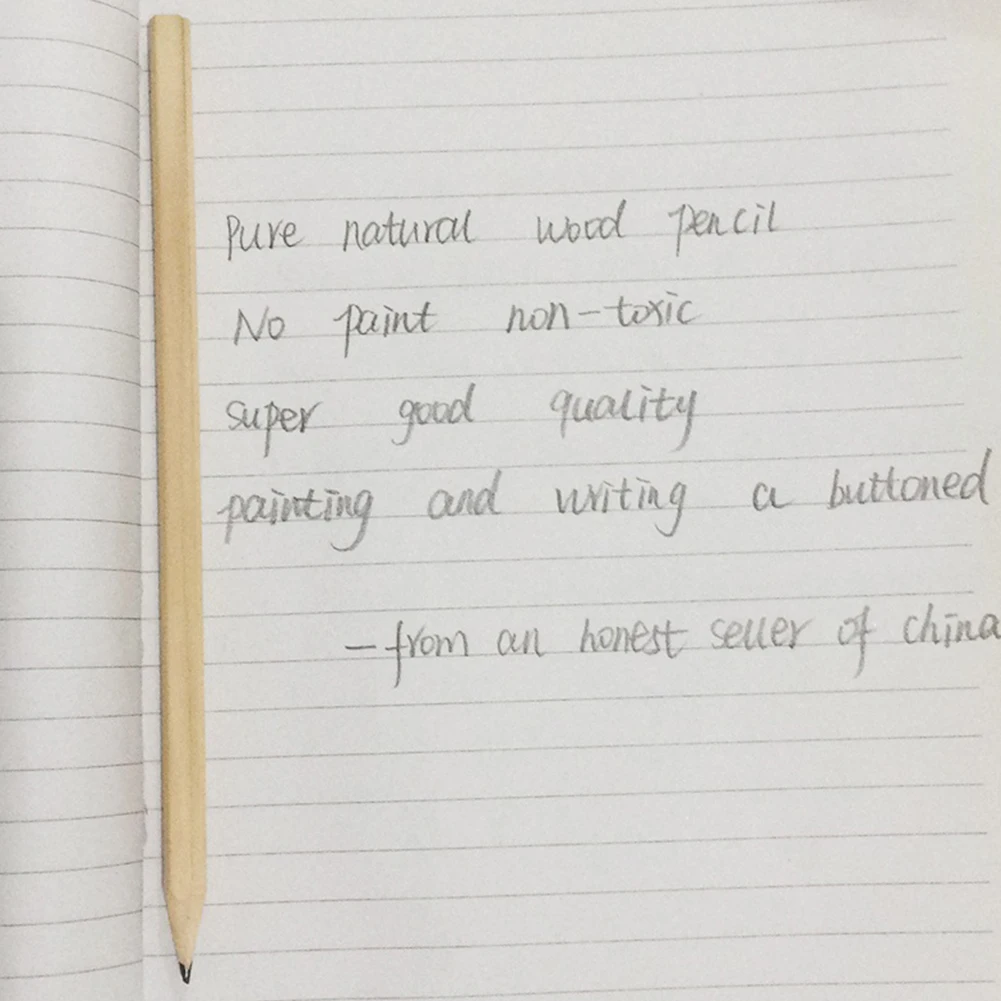 Pure natural wood pencil
No paint non-toxic
super good quality
painting and writing a buttoned
—from an honest seller of china